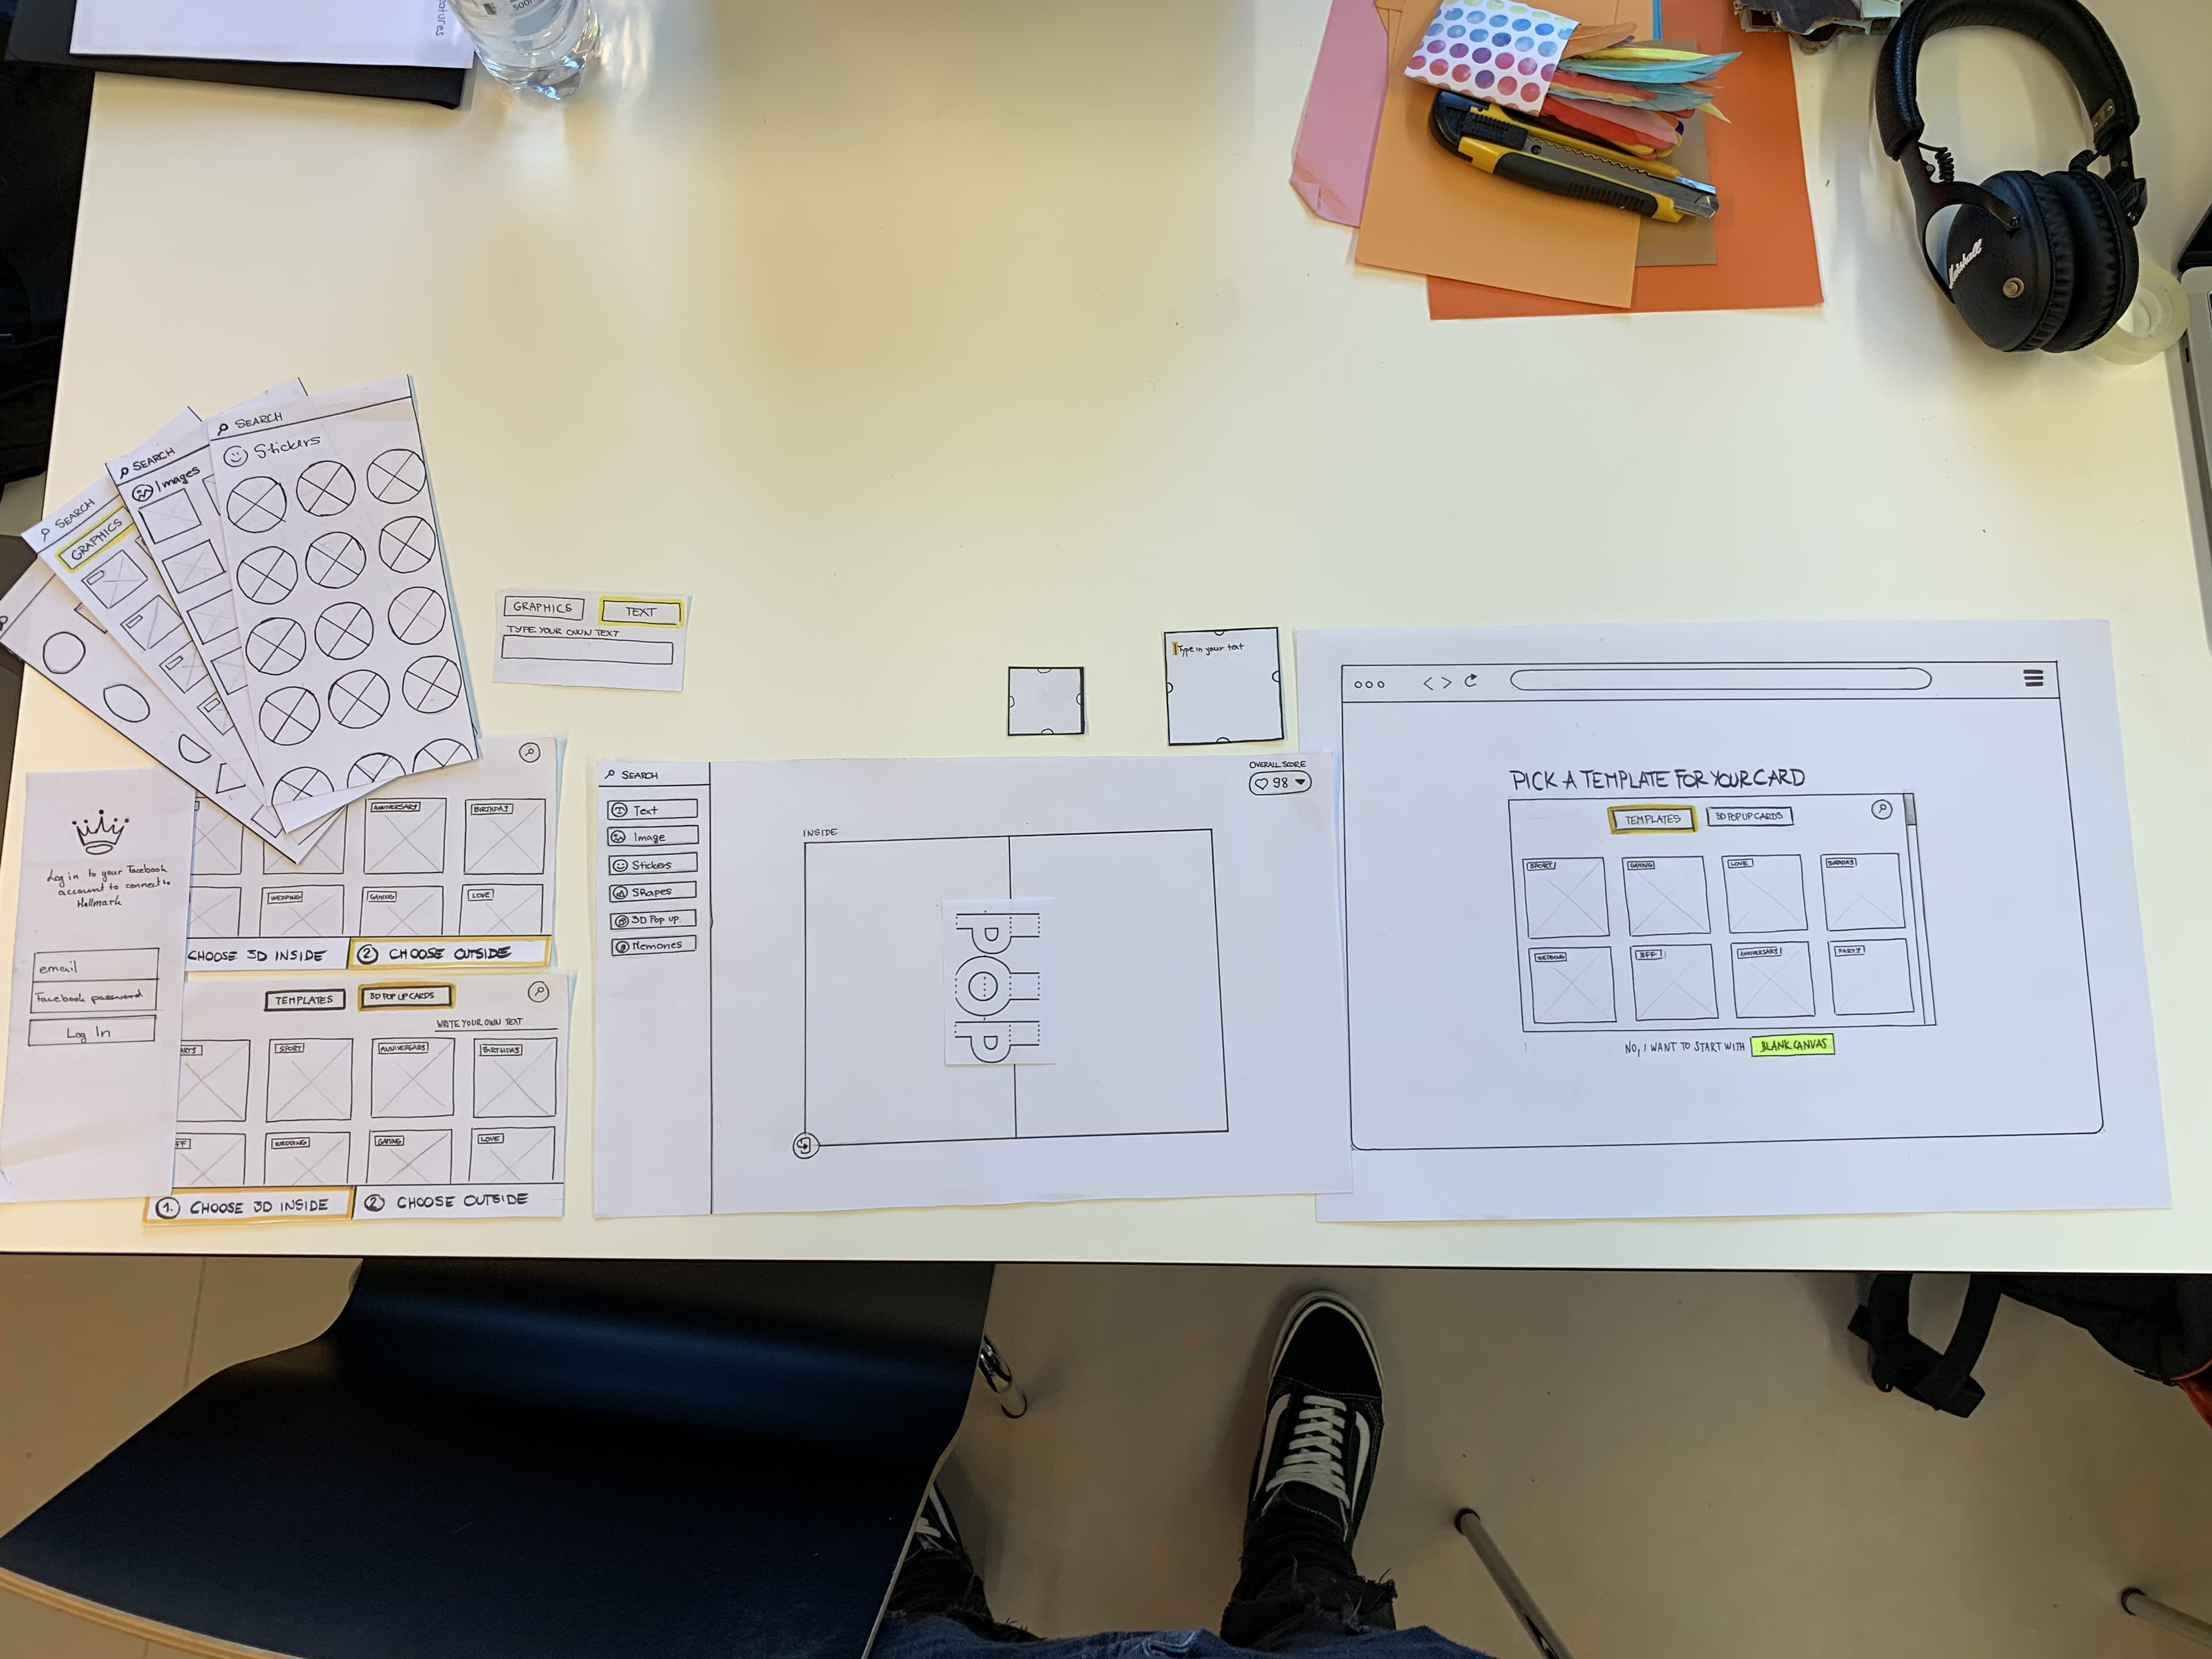 atures
500
Marshall
SEARCH
Stickers
SEARCH
Images
SEARCH
GRAPHICS
GRAPHICS
TEXT
TYPE YOUR OWN TEXT
Type in your text
Log in to your Facebook
account to connect to
Hallmark
email
Facebook password
Log In
ANNIVERSARY
BIRTHDAY
WEDDING
GAMING
LOVE
CHOOSE 3D INSIDE
2. CHOOSE OUTSIDE
TEMPLATES
3D POP UP CARDS
WRITE YOUR OWN TEXT
SPORT
ANNIVERSARY
BIRTHDAY
WEDDING
GAMING
LOVE
1. CHOOSE 3D INSIDE
2. CHOOSE OUTSIDE
SEARCH
Text
Image
Stickers
Shapes
3D Pop up
Memories
OVERALL SCORE
98
INSIDE
POP
PICK A TEMPLATE FOR YOUR CARD
TEMPLATES
3D POP UP CARDS
SPORT
GAMING
LOVE
BIRTHDAY
WEDDING
BFF
ANNIVERSARY
PARTY
NO, I WANT TO START WITH BLANK CANVAS